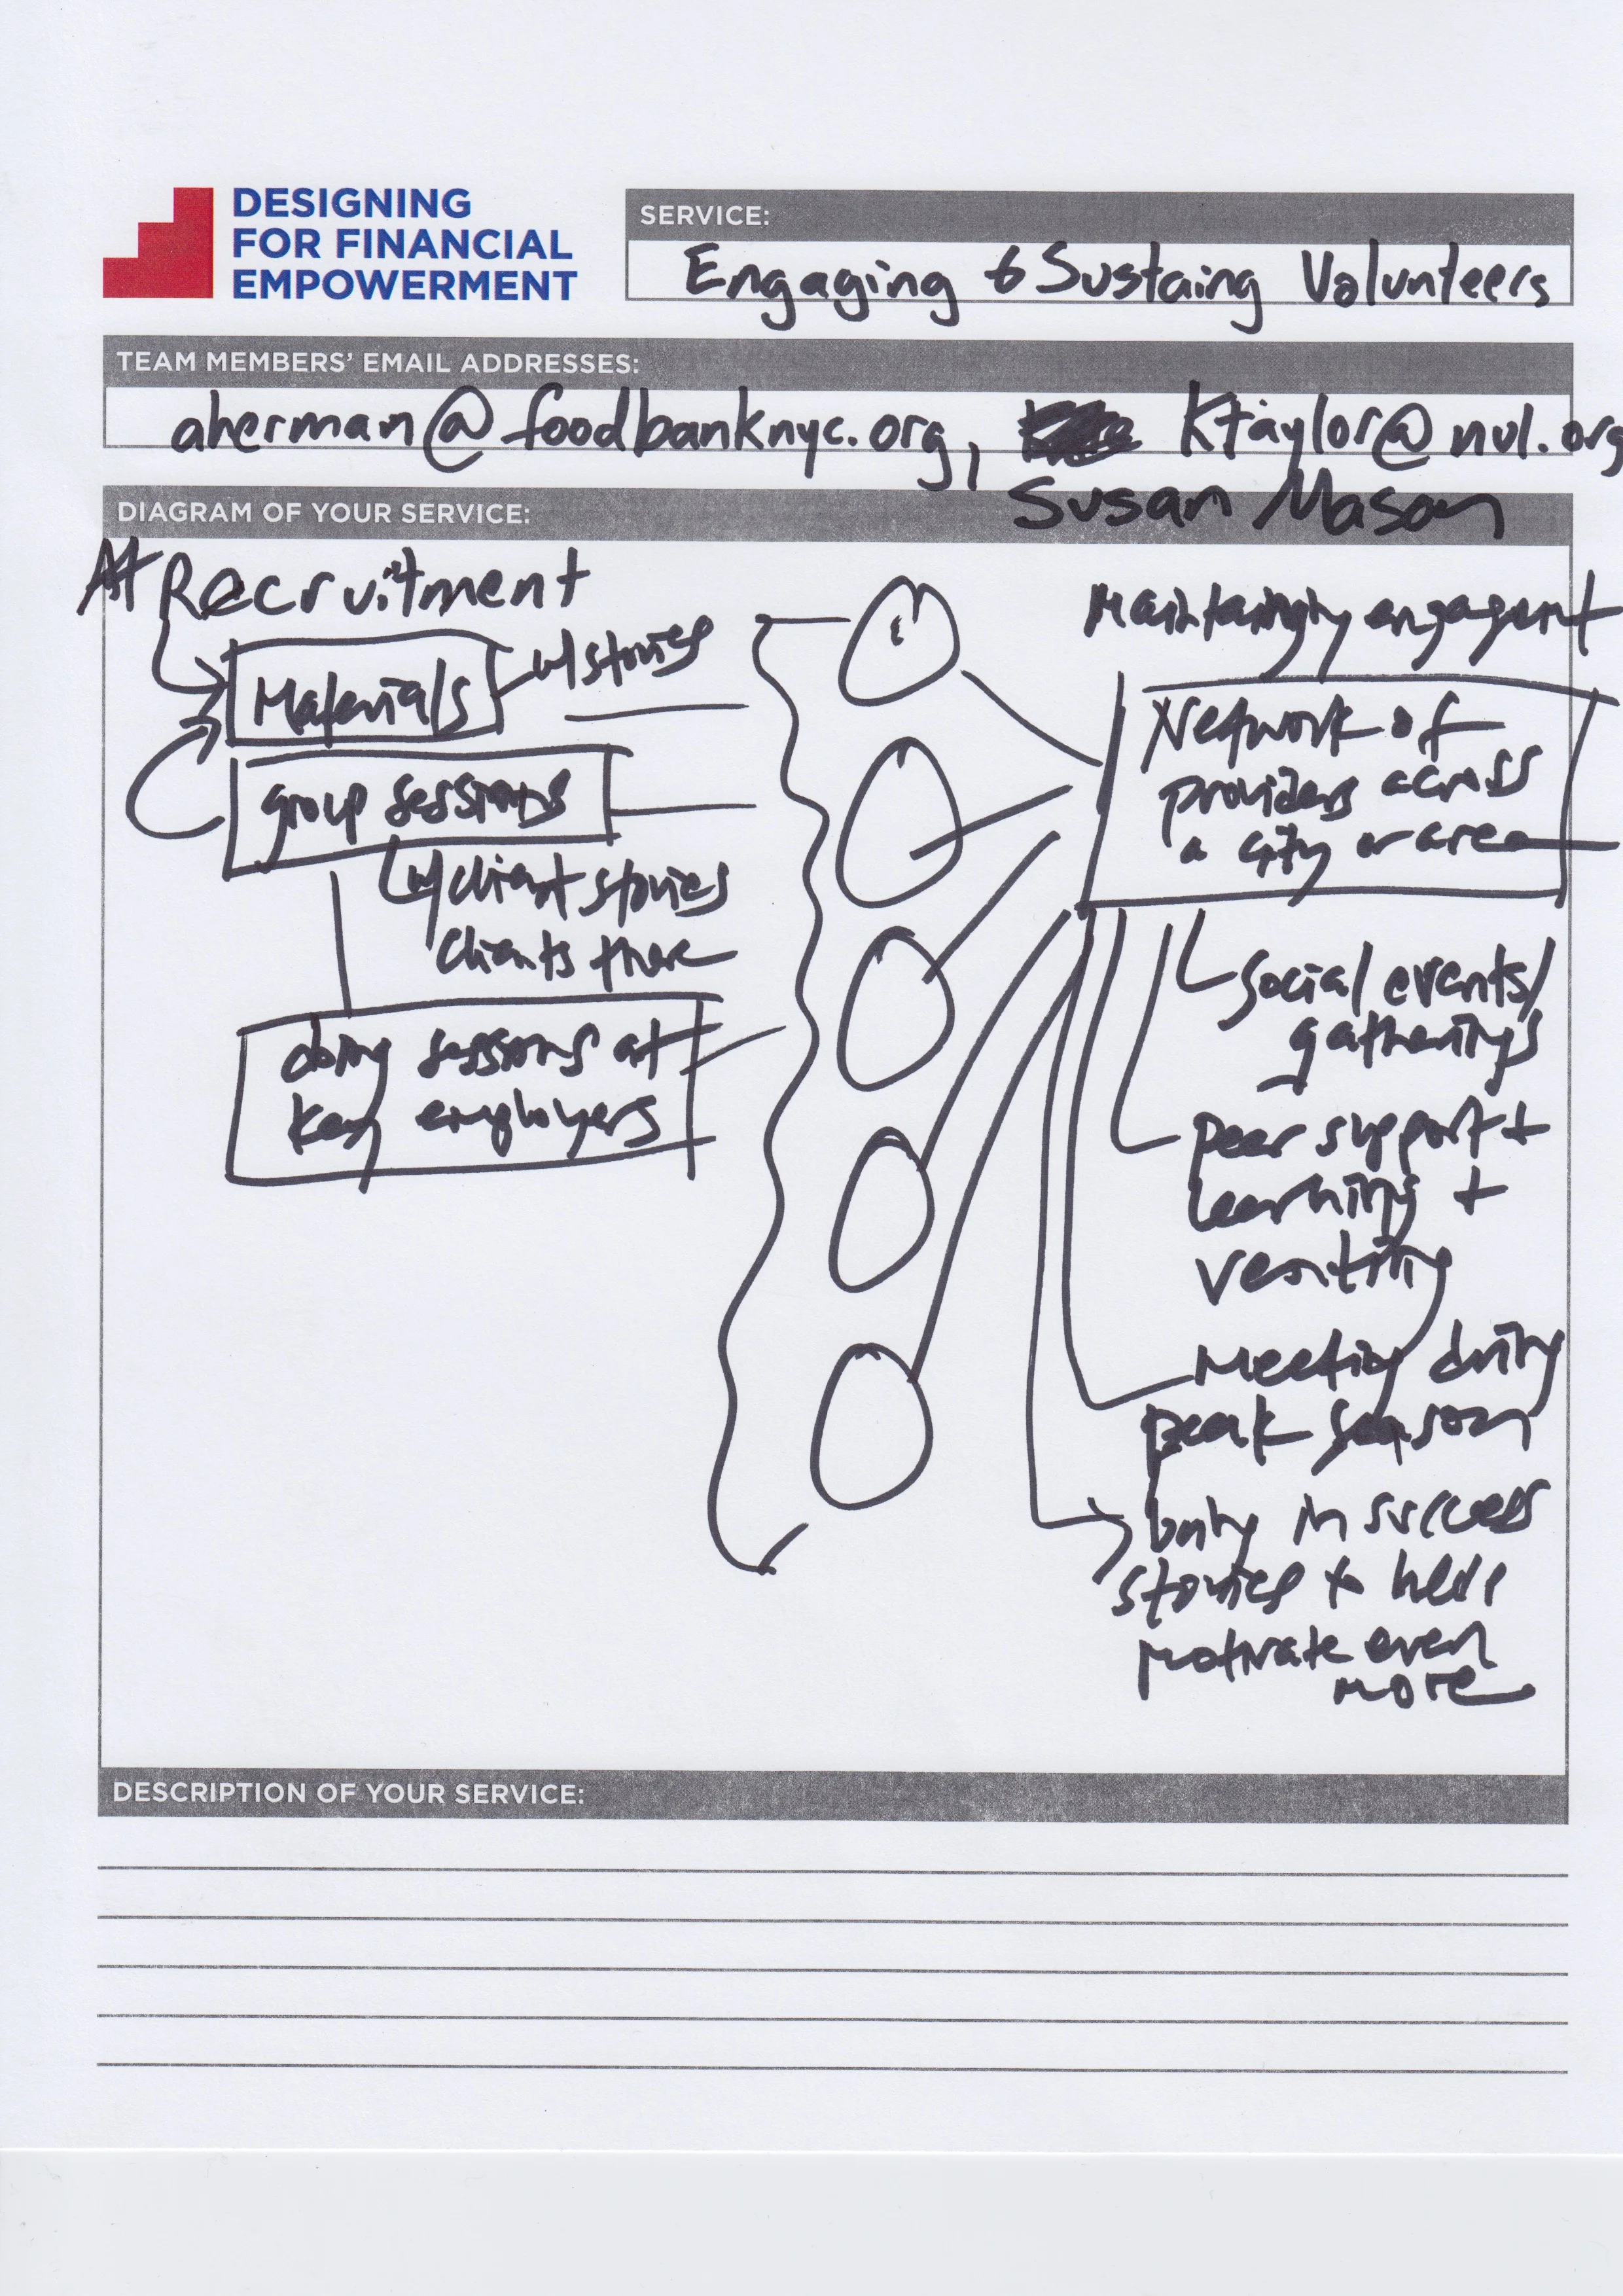 DESIGNING
FOR FINANCIAL
EMPOWERMENT
SERVICE:
Engaging & Sustaing Volunteers
TEAM MEMBERS' EMAIL ADDRESSES:
aherman@foodbanknyc.org, Ktaylor@nul.org
Susan Mason
DIAGRAM OF YOUR SERVICE:
At Recruitment
Materials
w/ stories
group sessions
w/ client stories
clients there
doing sessions at
key employers
Maintaining engagement
Network of
providers across
a city or area
social events/
gatherings
peer support +
learning +
venting
Meeting during
peak season
bring in success
stories to help
motivate even
more
DESCRIPTION OF YOUR SERVICE: